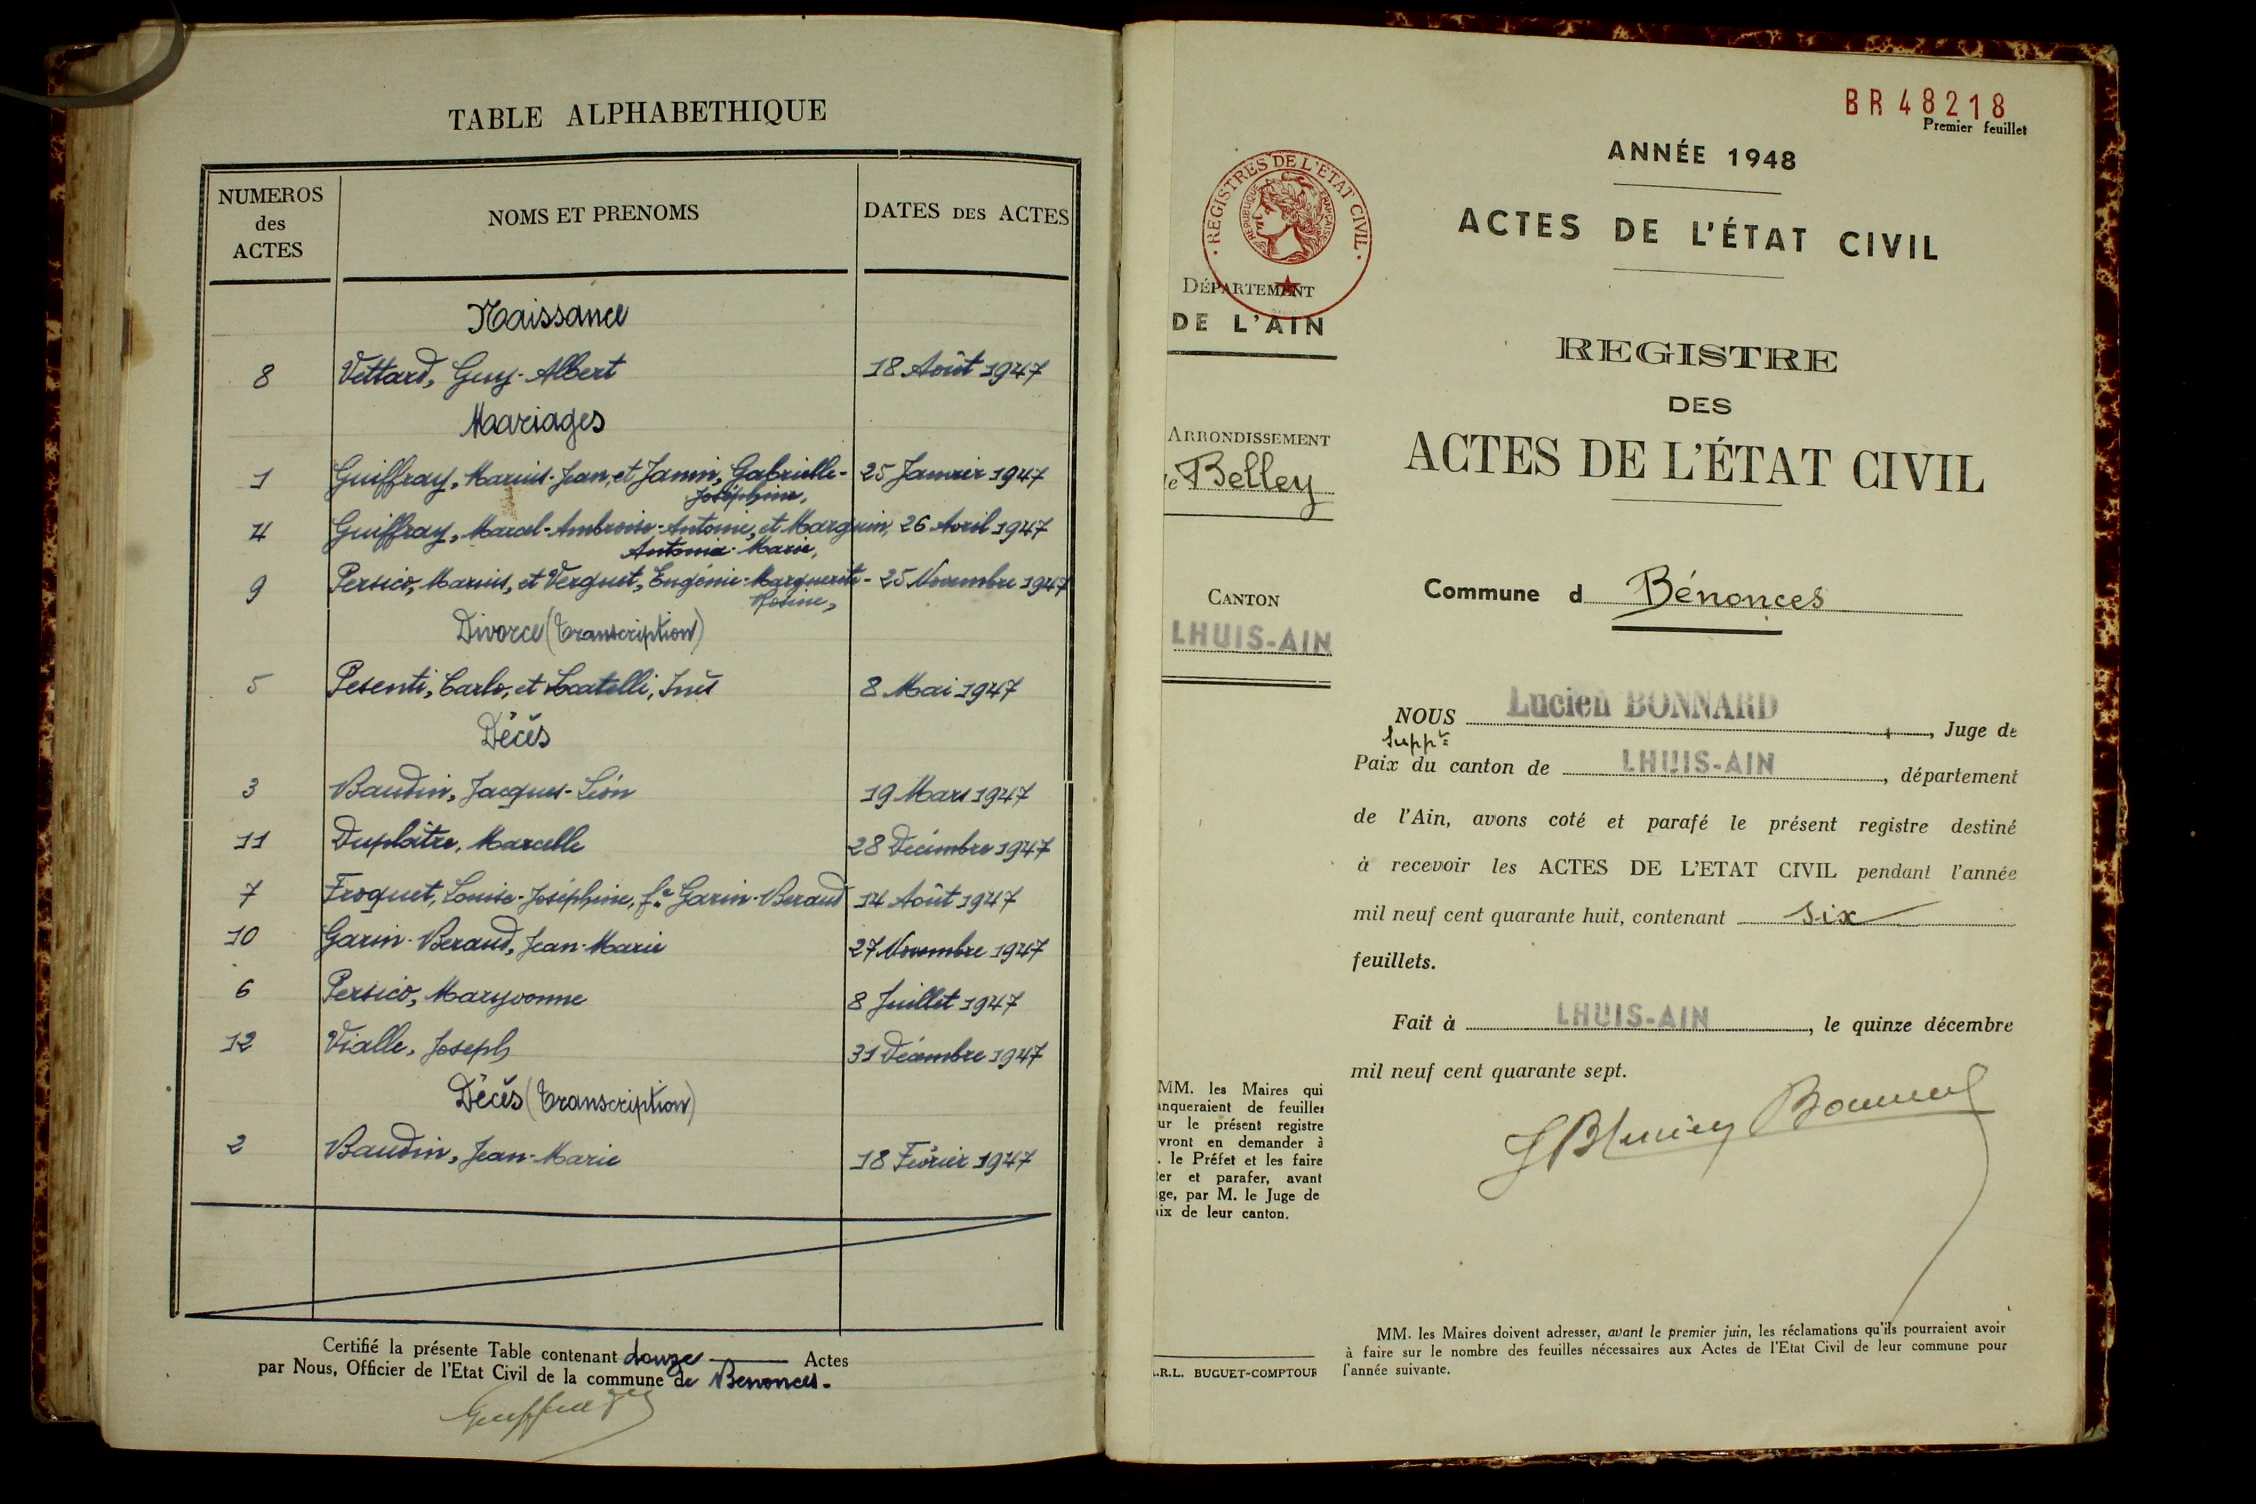 TABLE ALPHABETHIQUE
NUMEROS
des
ACTES
NOMS ET PRENOMS
DATES DES ACTES
Naissance
8 Vettard, Guy-Albert 18 Août 1947
Mariages
1 Guiffray, Marius-Jean, et Janin, Gabrielle- 25 Janvier 1947
Joséphine,
4 Guiffray, Marcel-Ambroise-Antoine, et Marguin, 26 Avril 1947
Antonia-Marie,
9 Persico, Marius, et Verguet, Eugénie-Marguerite- 25 Novembre 1947
Rosine,
Divorce (Transcription)
5 Pesenti, Carlo, et Locatelli, Inès 8 Mai 1947
Décès
3 Baudin, Jacques-Léon 19 Mars 1947
11 Duplâtre, Marcelle 28 Décembre 1947
7 Froquet, Louise-Joséphine, fe Garin-Beraud 14 Août 1947
10 Garin-Beraud, Jean-Marie 27 Novembre 1947
6 Persico, Maryvonne 8 Juillet 1947
12 Vialle, Joseph 31 Décembre 1947
Décès (Transcription)
2 Baudin, Jean-Marie 18 Février 1947
Certifié la présente Table contenant douze Actes
par Nous, Officier de l'Etat Civil de la commune de Benonces.
BR 48218
Premier feuillet
ANNÉE 1948
ACTES DE L'ÉTAT CIVIL
· REGISTRES DE L'ETAT CIVIL ·
REPUBLIQUE FRANÇAISE
DÉPARTEMENT
DE L'AIN
ARRONDISSEMENT
de Belley
CANTON
LHUIS-AIN
REGISTRE
DES
ACTES DE L'ÉTAT CIVIL
Commune d Bénonces
NOUS Lucien BONNARD, Juge de
Suppt
Paix du canton de LHUIS-AIN, département
de l'Ain, avons coté et parafé le présent registre destiné
à recevoir les ACTES DE L'ETAT CIVIL pendant l'année
mil neuf cent quarante huit, contenant six
feuillets.
Fait à LHUIS-AIN, le quinze décembre
mil neuf cent quarante sept.
MM. les Maires qui
anqueraient de feuilles
ur le présent registre
vront en demander à
. le Préfet et les faire
ter et parafer, avant
ge, par M. le Juge de
aix de leur canton.
.R.L. BUGUET-COMPTOUR
MM. les Maires doivent adresser, avant le premier juin, les réclamations qu'ils pourraient avoir
à faire sur le nombre des feuilles nécessaires aux Actes de l'Etat Civil de leur commune pour
l'année suivante.